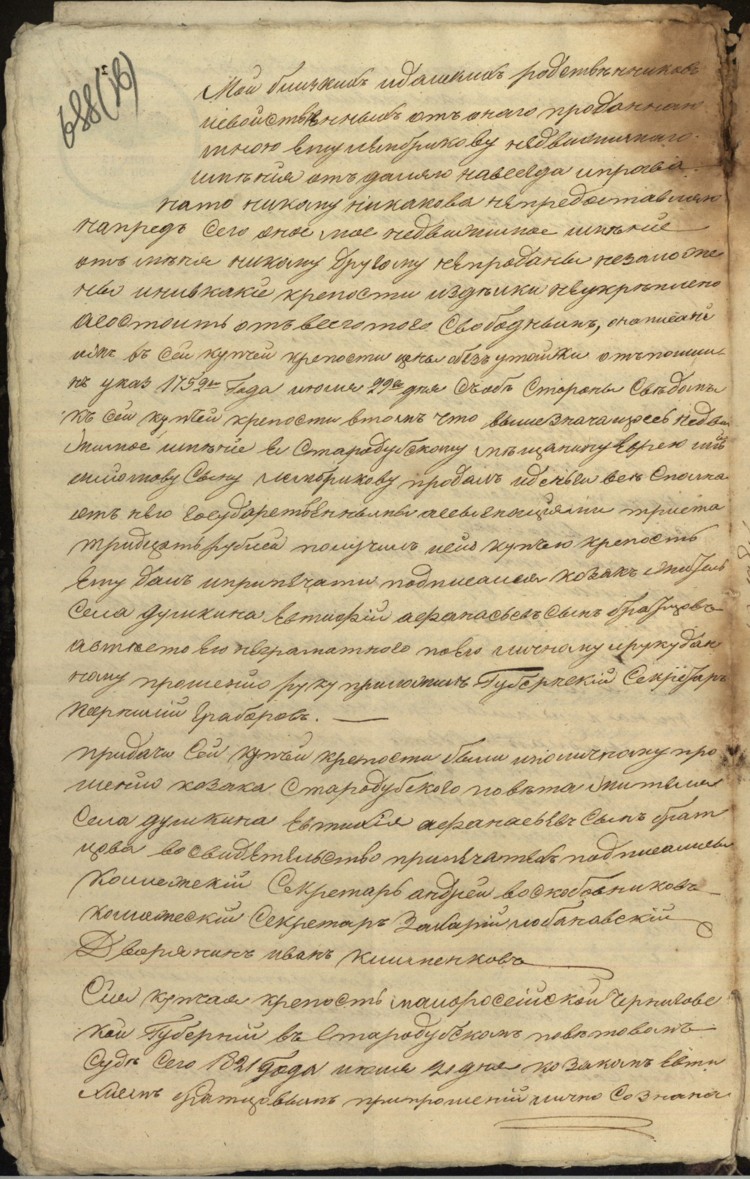 688(16)
Мои ближнихъ и дальнихъ родственниковъ
и свойственныхъ отъ онаго проданнаго
мною ему недвижимаго
имения отъ даляю навсегда и права
на то никому никакова не предоставляю
напредъ сего оное мое недвижимое имение
отъ меня никому другому не проданы не заложе
ны и ни в какие крепости и зделки не укреплено
а состоитъ отъ всего того свободнымъ, а написани
въ сей купчей крепости цены безъ утайки
указ 1752го года июля 29го дня съ обе стороны сведомъ
къ сей купчей крепости в томъ что выше значащоесь недви
жимое имение я Стародубскому мещанину Еврею
сыну продалъ и денги все сполна
отъ него государственными ассигнациями триста
тридцать рублей получилъ и сию купчую крепость
ему далъ и при печати подписался козакъ житель
села Душкина Евтифий Афанасьевъ сынъ Братцовъ
а вместо его неграматного по его личному и рукудан
ному прошению руку приложилъ Губернский Секретар
Корнилий Граборовъ. —
при дачи сей купчей крепости были и по личному про
шению козака Стародубского повета жителя
села Душкина Евтифия Афанасьева сына Брат
цова во свидетельство при печатехъ подписались
Коллежский Секретарь Андрей Воскобойниковъ
Коллежский Секретаръ Захарий Лобановский
Дворянинъ Иванъ Клименковъ
Сия купчая крепость Малоросийской Чернигове
кой Губернии въ Стародубскомъ поветовомъ
суде сего 1821 года июля дня козакомъ Евти
Братцовымъ при прошении лично сознана